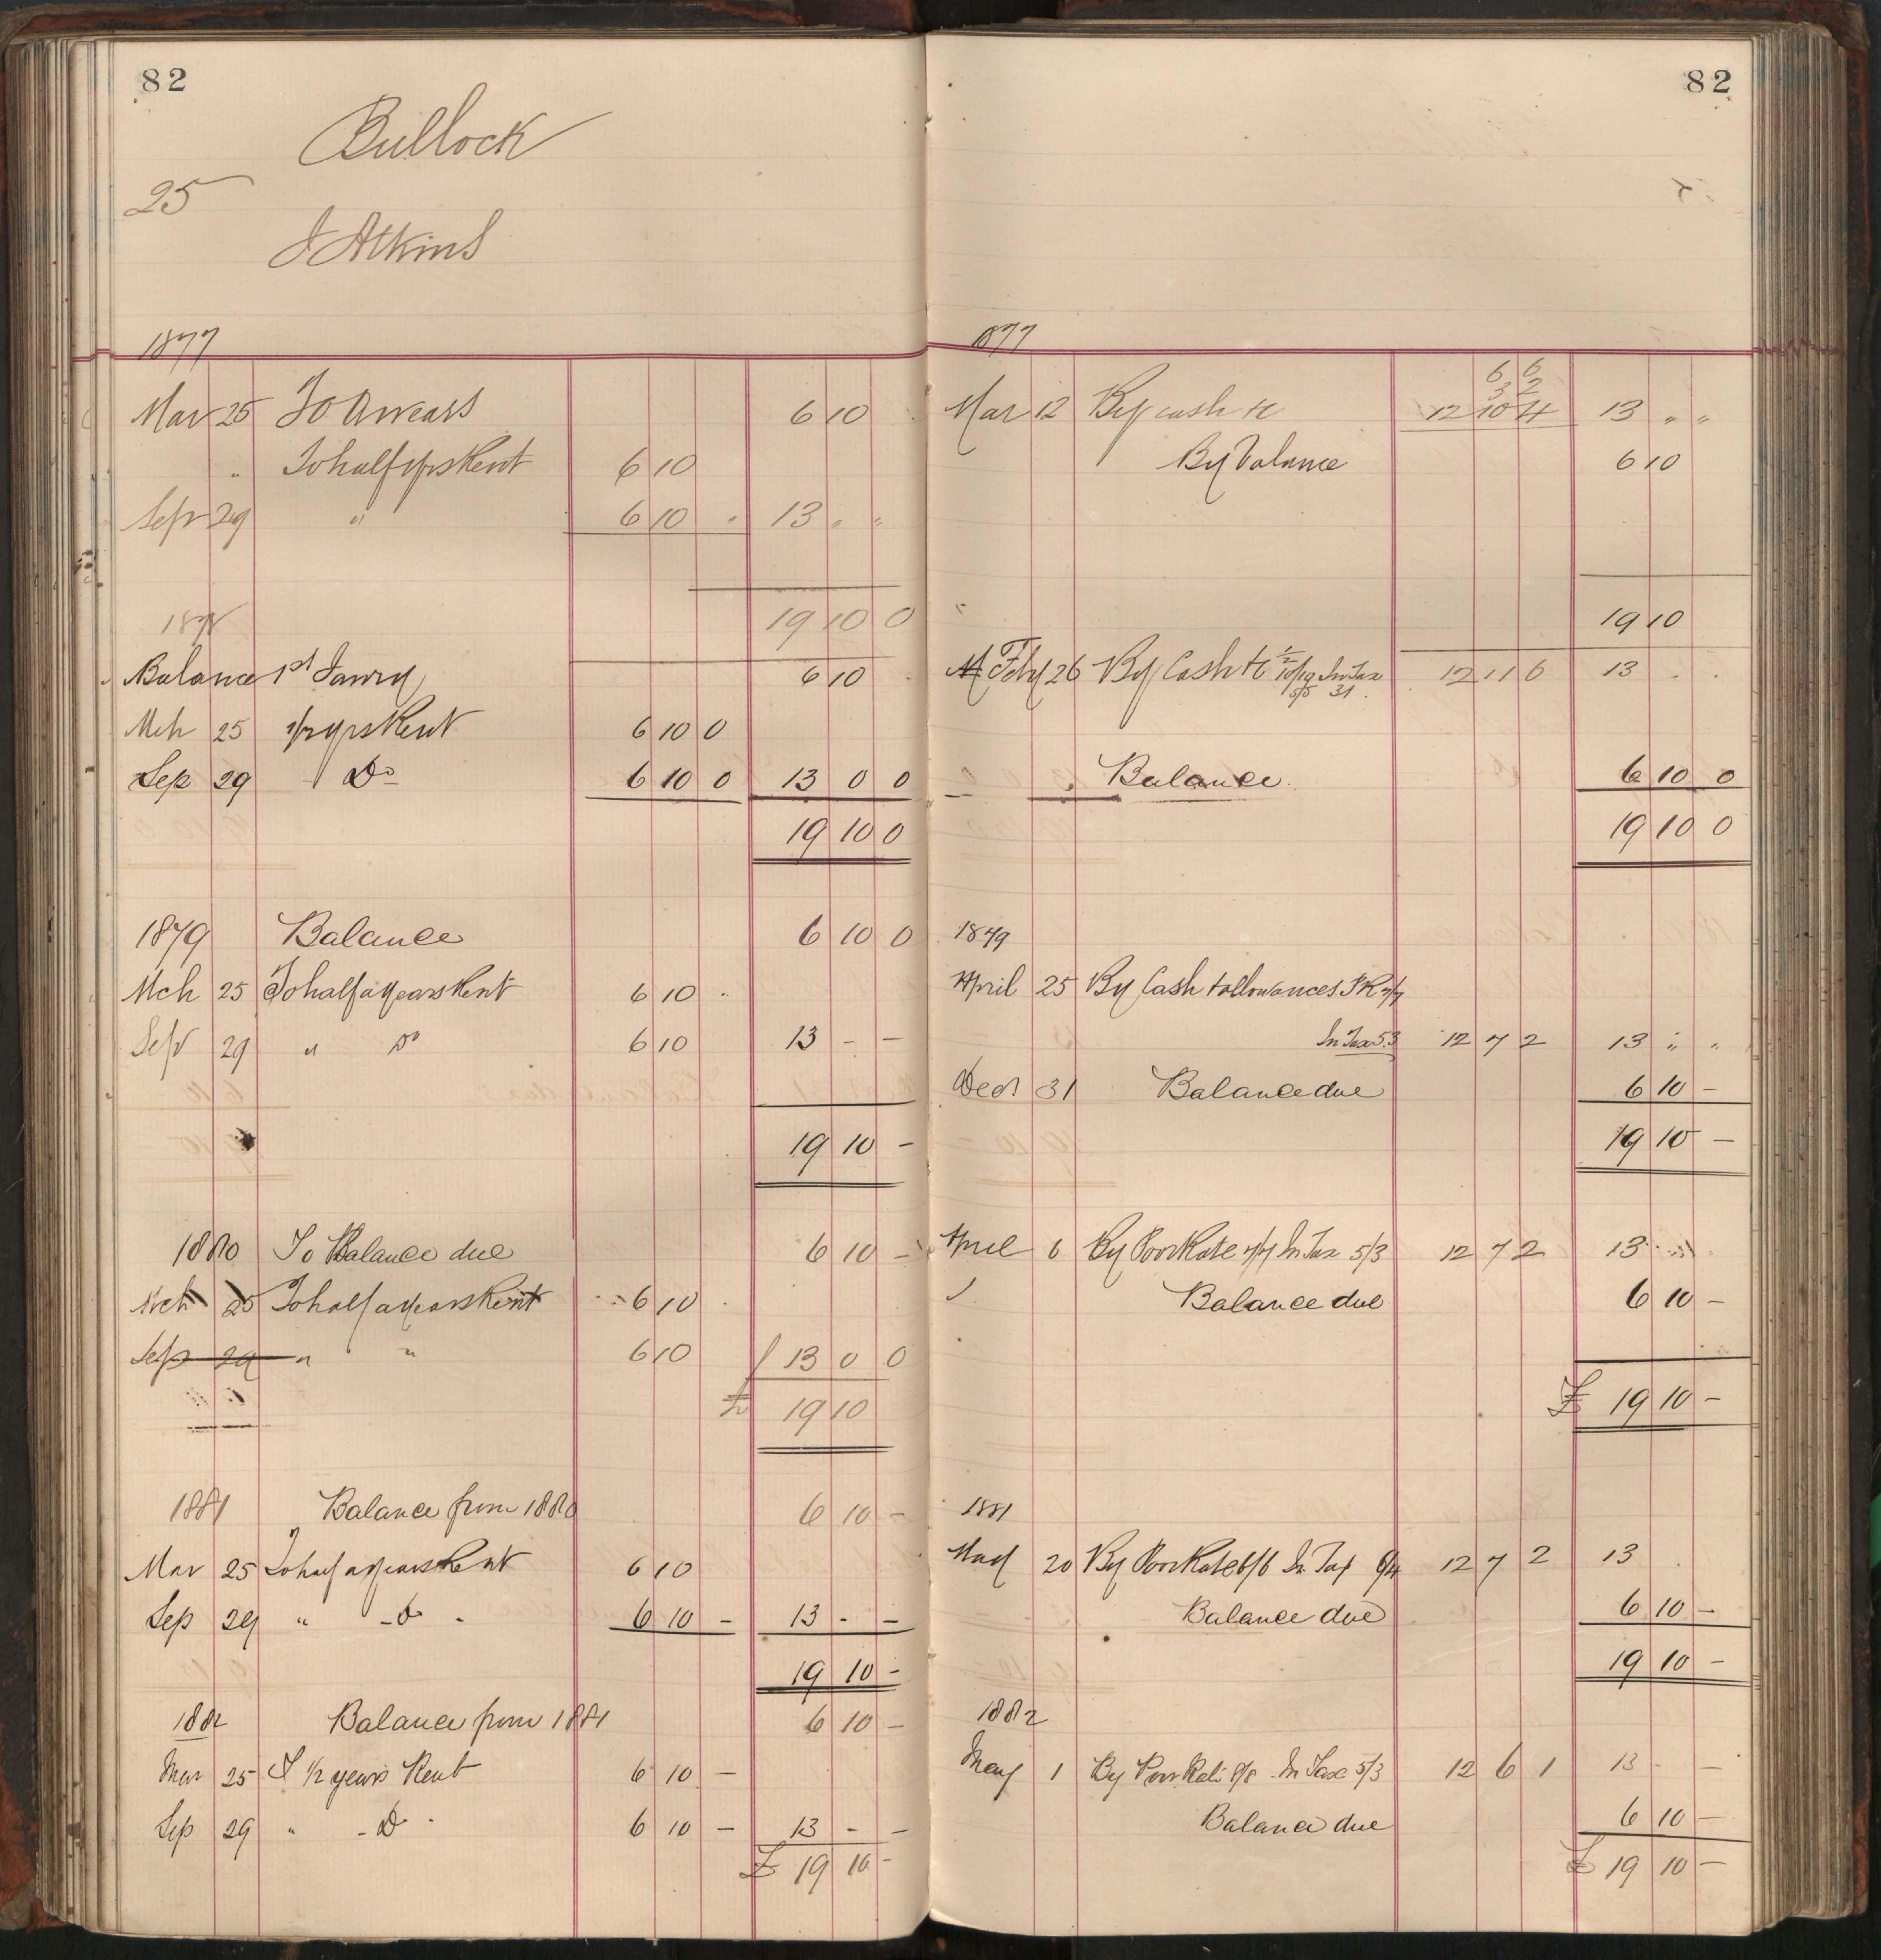 82
Bullock
25
J Atkins
1877
Mar 25 To Arrears 6 10
" To half yrs Rent 6 10
Sepr 29 " 6 10 " 13 " "
19 10 0
1878
Balance 1st Janry 6 10
Mch 25 1/2 yrs Rent 6 10 0
Sep 29 Do 6 10 0 13 0 0
19 10 0
1879 Balance 6 10 0
Mch 25 To half a years Rent 6 10
Sepr 29 " Do 6 10 13 - -
19 10 -
1880 To Balance due 6 10 -
Mch 25 To half a years Rent 6 10
Sep 29 " " 6 10 13 0 0
£ 19 10
1881 Balance from 1880 6 10 -
Mar 25 To half a years Rent 6 10
Sep 29 " - Do - 6 10 - 13 - -
19 10 -
1882 Balance from 1881 6 10 -
Mar 25 T 1/2 years Rent 6 10 -
Sep 29 " - Do - 6 10 - 13 - -
£ 19 10 -
82
1877
6 6
3 2
Mar 12 By cash &c 12 10 4 13 " "
By Balance 6 10
19 10
Feby 26 By Cash &c In Tax 12 11 6 13 . .
5/5 31
Balance 6 10 0
19 10 0
1879
April 25 By Cash & allowances P R 7/7
In Tax 5.3 12 7 2 13 " "
Decr 31 Balance due 6 10 -
19 10 -
April 6 By Poor Rate 7/7 In Tax 5/3 12 7 2 13
Balance due 6 10 -
£ 19 10 -
1881
May 20 By Poor Rate 6/6 In Tax 6/4 12 7 2 13
Balance due 6 10 -
19 10 -
1882
May 1 By Poor Rate 8/8 In Tax 5/3 12 6 1 13 - -
Balance due 6 10 -
£ 19 10 -